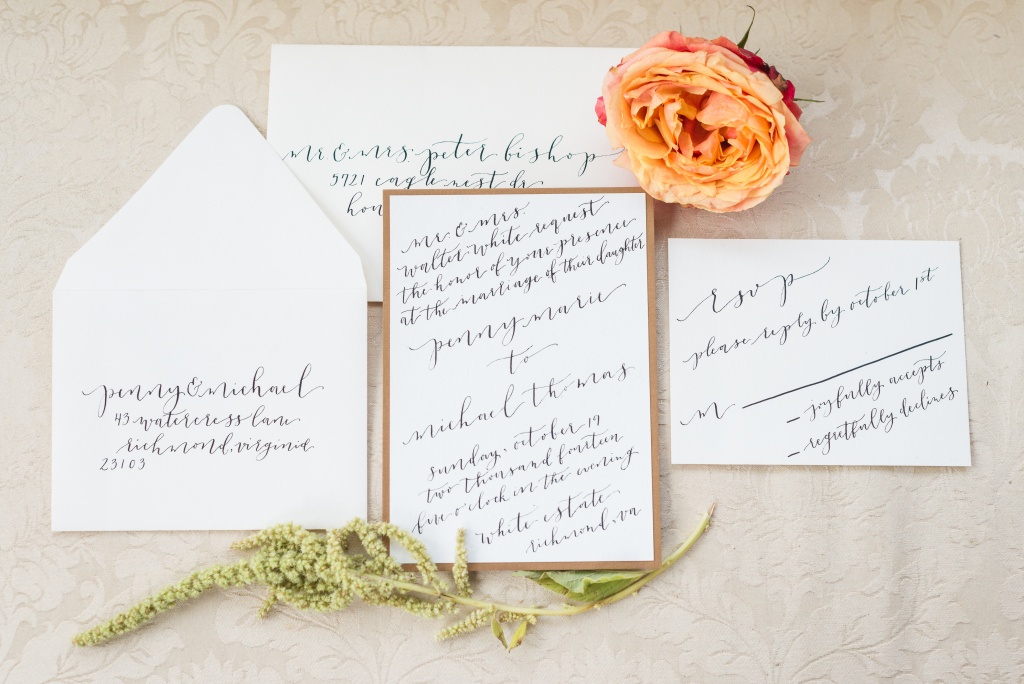 mr. & mrs. peter bishop
5921 eagle nest dr.
penny & michael
43 watercress lane
richmond, virginia
23103
mr. & mrs.
walter white request
the honor of your presence
at the marriage of their daughter
penny marie
to
michael thomas
sunday, october 19
two thousand fourteen
five o'clock in the evening
white estate
richmond, va
rsvp
please reply by october 1st
m
joyfully accepts
regretfully declines